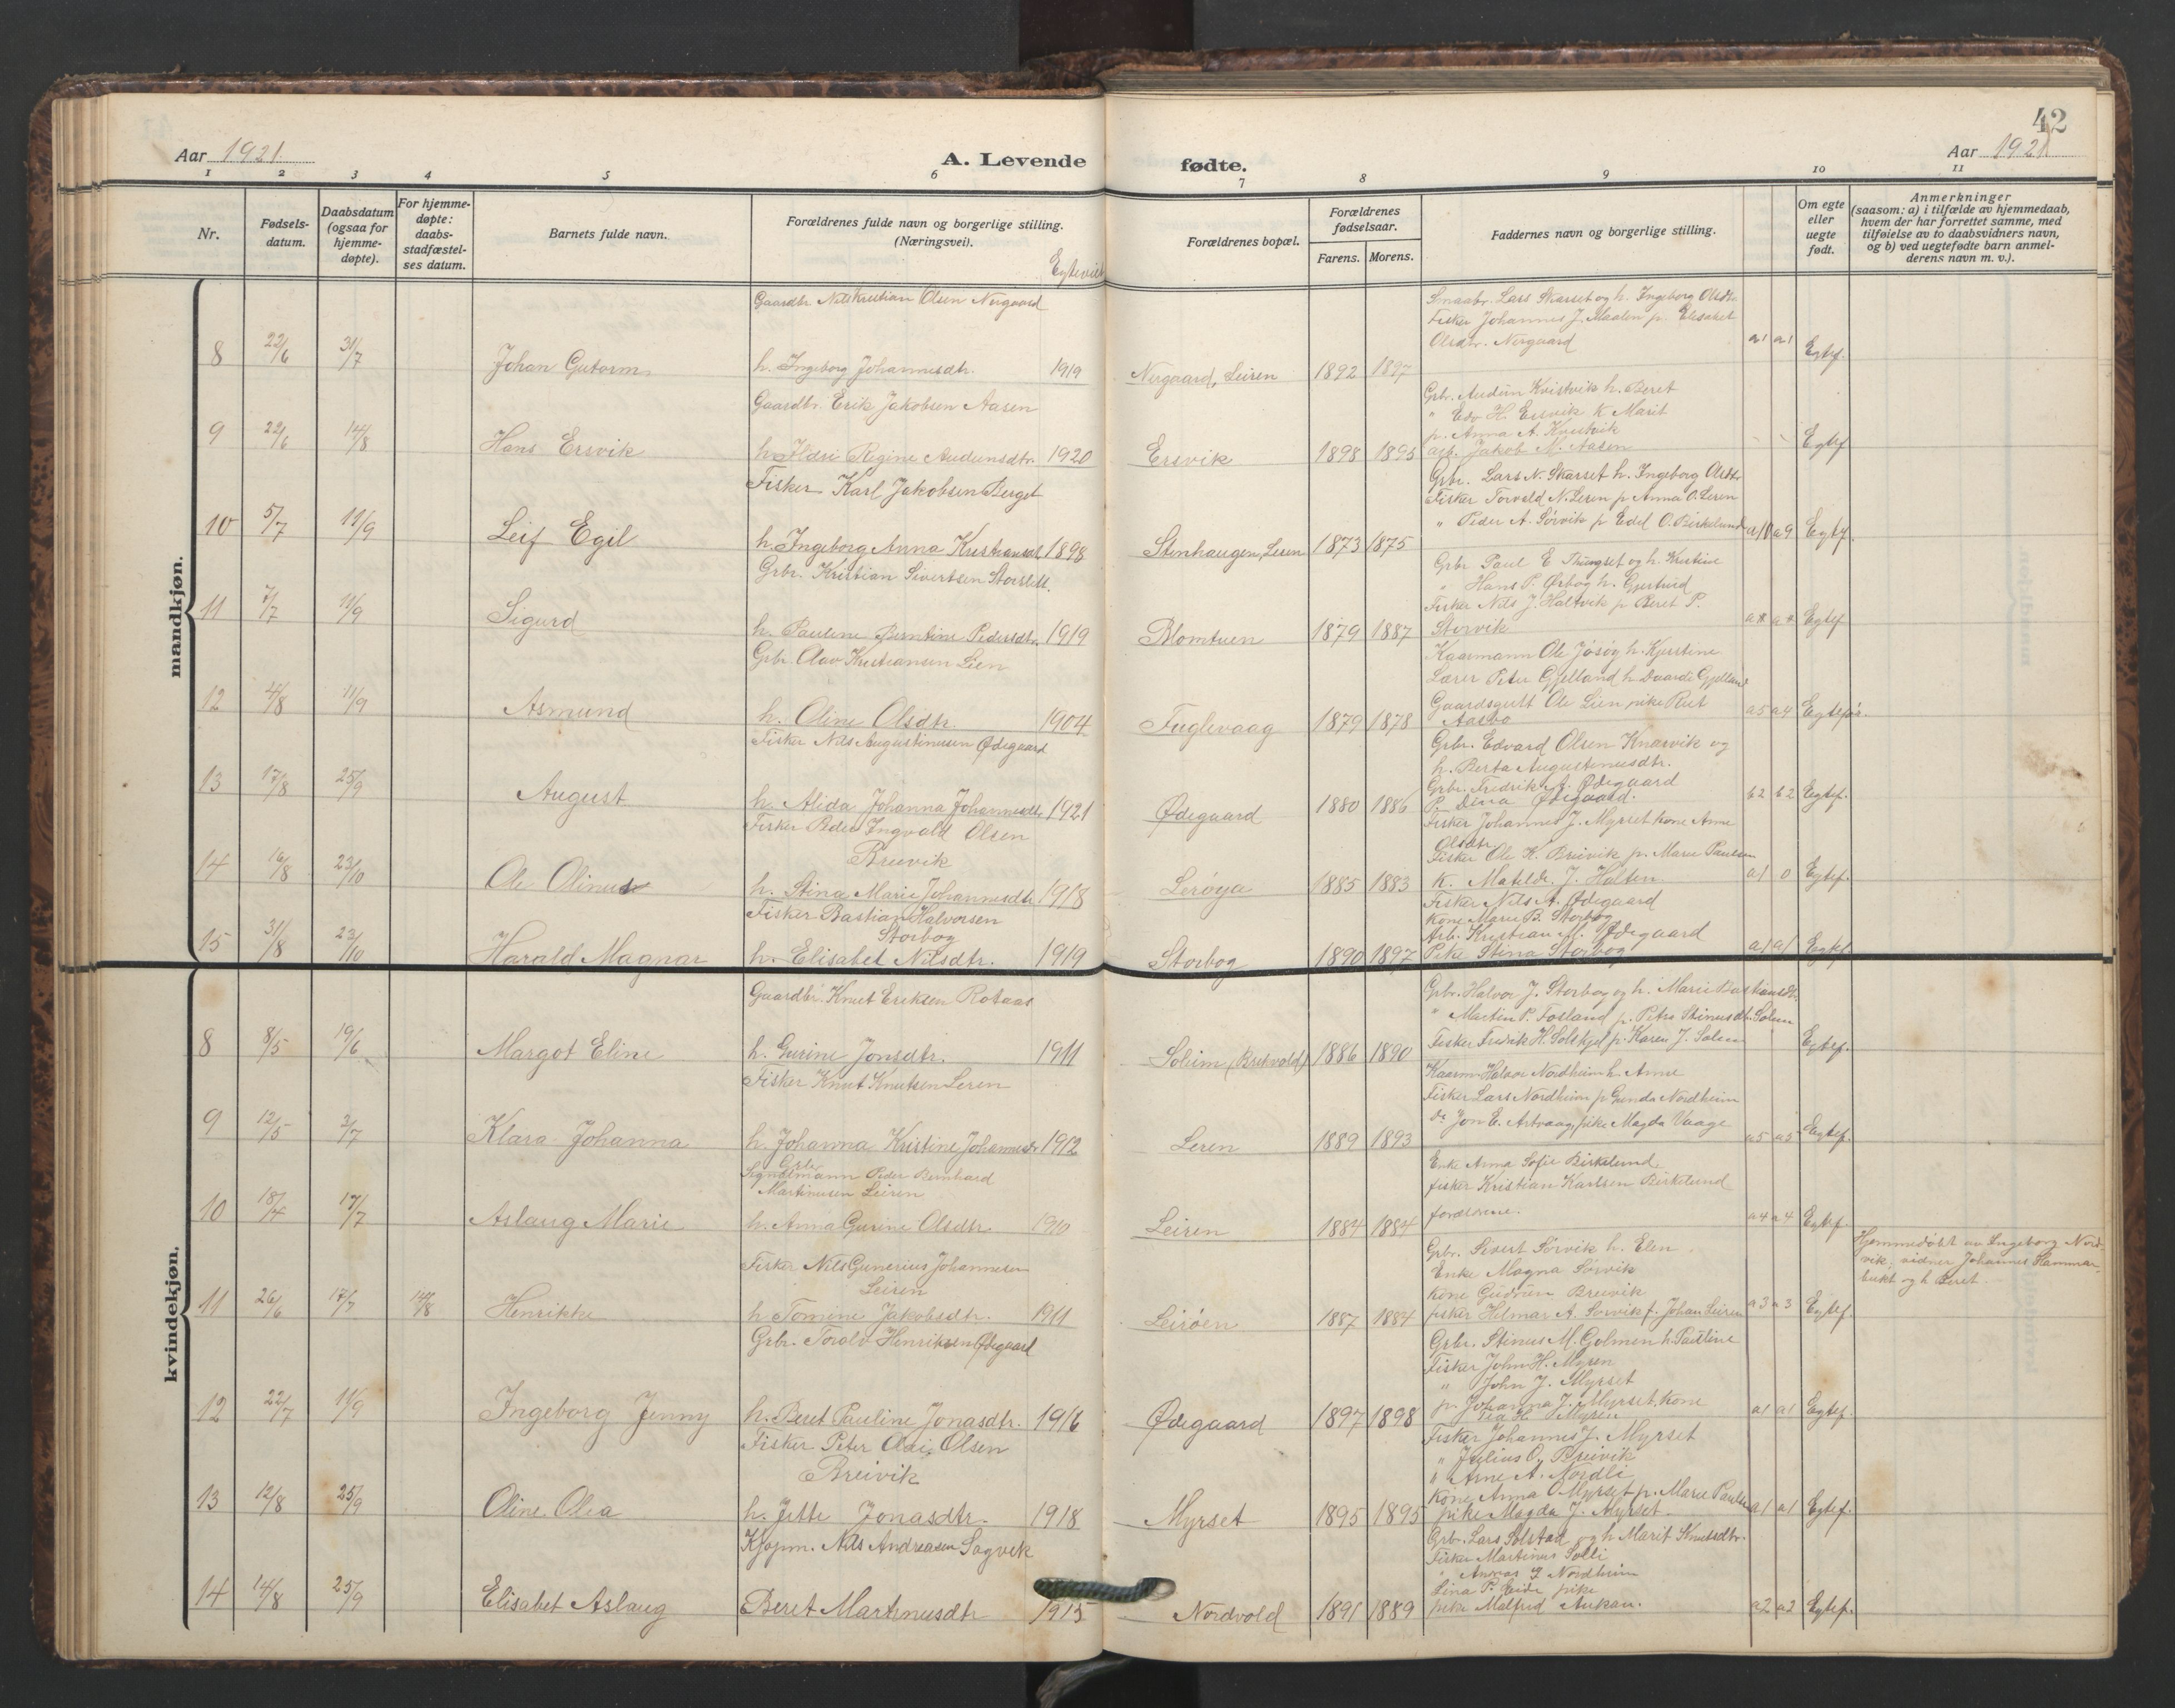 42
Aar 1921.
A. Levende
fødte.
Aar 1921
1 2 3 4 5 6 7 8 9 10 11
Nr.
Fødsels-
datum.
Daabsdatum
(ogsaa for
hjemme-
døpte).
For hjemme-
døpte:
daabs-
stadfæstel-
ses datum.
Barnets fulde navn.
Forældrenes fulde navn og borgerlige stilling.
(Næringsvei).
Forældrenes bopæl.
Forældrenes
fødselsaar.
Farens. Morens.
Faddernes navn og borgerlige stilling.
Om egte
eller
uegte
født.
Anmerkninger
(saasom: a) i tilfælde av hjemmedaab,
hvem der har forrettet samme, med
tilføielse av to daabsvidners navn,
og b) ved uegtefødte barn anmel-
derens navn m. v.).
mandkjøn.
Gaardbr. Nils Kristian Olsen Nergaard
Smaabr. Lars Skarset og h. Ingeborg Olsdtr.
Fisker Johannes J. Maalen p. Elisabet
Olsdtr. Nergaard
8 22/6 31/7 Johan Gutorm h. Ingeborg Johannesdtr. 1919 Nergaard, Leiren 1892 1897 a1 a1 Egtef.
Gaardbr. Erik Jakobsen Aasen
Grbr. Audun Kvistvik h. Beret
" Edv H. Ersvik K Marit
p. Anna A. Kvistvik
arb. Jakob M. Aasen
9 22/6 14/8 Hans Ersvik h. Regine Audunsdtr. 1920 Ersvik 1898 1895 Egtef
Fisker Karl Jakobsen Berget
Grbr. Lars N. Skarset h. Ingeborg Olsdtr
Fisker Torvald N. Leren p Anna O. Leren
" Peder A. Sørvik p Edel O. Birkelund
10 5/7 11/9 Leif Egil h. Ingeborg Anna Kristiansdt. 1898 Stenhaugen, Leren 1873 1875 a10 a9 Egtf.
Grbr. Kristian Sivertsen Storslett.
Grbr Paul E Thungset og h. Kristine
" Hans P. Ørbog h. Gjertrud
Fisker Nils J. Haltvik p Beret P.
Storvik
11 7/7 11/9 Sigurd h. Pauline Berntine Pedersdtr. 1919 Blomtuen 1879 1887 Egtef
Grbr. Olav Kristiansen Lien
Kaarmann Ole Jøsøy h. Kjerstine
Lærer Peter Gjelland h. Gjelland
Gaardsgutt Ole Lien pike Rut
Aasbø
12 4/8 11/9 Asmund h. Oline Olsdtr. 1904 Fuglevaag 1879 1878 a5 a4 Egtefør.
Fisker Nils Augustinusen Ødegaard
Grbr. Edvard Olsen Knarvik og
h. Berta Augustinusdtr.
Grbr. Fredrik A. Ødegaard
P. Dina Ødegaard.
13 17/8 25/9 August h. Alida Johanna Johannesdtr 1921 Ødegaard 1880 1886 b2 b2 Egtef.
Fisker Peder Ingvald Olsen
Breivik
Fisker Johannes J. Myrset kone Anne
Olsdtr.
Fisker Ole K. Breivik p. Marie Paulsen
K. Matilde J. Holten
14 16/8 23/10 Ole Olinus h. Stina Marie Johannesdtr 1918 Lerøya 1885 1883 a1 0 Egtef.
Fisker Bastian Halvorsen
Storbog
Fisker Nils A. Ødegaard
Kone Marie B. Storbog
Arb. Kristian M. Ødegaard
Pike Stina Storbog
15 31/8 23/10 Harald Magnar h. Elisabet Nilsdtr. 1919 Storbog 1890 1897 a1 a1 Egtef.
kvindekjøn.
Gaardbr. Knut Eriksen Rotaas
Grbr. Halvor J. Storbog og h. Marie Bastiansdt.
" Martin P. Fosland p. Petra Stinusdtr. Solem
Fisker Fredrik H. Solskjel p. Karen J. Solem
8 8/5 19/6 Margot Eline h. Gurine Jonsdtr. 1911 Solem (Breivold) 1886 1890 Egtef.
Fisker Knut Knutsen Leren
Kaarm. Halvor Nordheim h. Anne
Fisker Lars Nordheim p Gunda Nordheim
do Jon E. Artvaag, pike Magda Vaage
9 12/5 3/7 Klara Johanna h. Johanna Kristine Johannesdr 1912 Leren 1889 1893 a5 a5 Egtef.
Grbr.
Signalmann Peder Bernhard
Martinusen Leiren
Enke Anna Sofie Birkelund
fisker Kristian Karlsen Birkelund
forældrene.
10 18/4 17/7 Aslaug Marie h. Anna Gurine Olsdtr. 1910 Leiren 1884 1884 a4 a4 Egtef.
Fisker Nils Gunerius Johannesen
Leiren
Grbr. Sivert Sørvik h. Elen
Enke Magna Sørvik
Kone Gudrun Breivik
fisker Hilmar A. Sørvik f. Johan Leiren
Hjemmedøbt av Ingeborg Nord-
vik, vidner Johannes Hammar-
bukt og h Beret.
11 26/6 17/7 14/8 Henrikke h Tomine Jakobsdtr. 1911 Leirøen 1887 1884 a3 a3 Egtef.
Grbr. Torolv Henriksen Ødegaard
Grbr. Stinus M. Golmen h. Pauline
Fisker John H. Myren
" John J. Myrset
p. Johanna J. Myrset, Kone
Myren
12 22/7 11/9 Ingeborg Jenny h. Beret Pauline Jonasdtr. 1916 Ødegaard 1897 1898 a1 a1 Egtef.
Fisker Peter Olai Olsen
Breivik
Fisker Johannes J. Myrset
" Julius O. Breivik
" Arne A. Nordli
Kone Anna O Myrset p. Marie Paulsen
pike Magda J. Myrset.
13 12/8 25/9 Oline Olea h. Jette Jonasdtr. 1918 Myrset 1895 1895 a1 a1 Egtef.
Kjøpm. Nils Andreasen Sagvik
Grbr. Lars Solstad og h Marit Knutsdtr.
Fisker Martinus Solli
" Nordheim
Lina P. Eide pike
pike Malfrid Aukan.
14 14/8 25/9 Elisabet Aslaug Beret Martinusdtr 1915 Nordvold 1891 1889 a2 a2 Egtef.